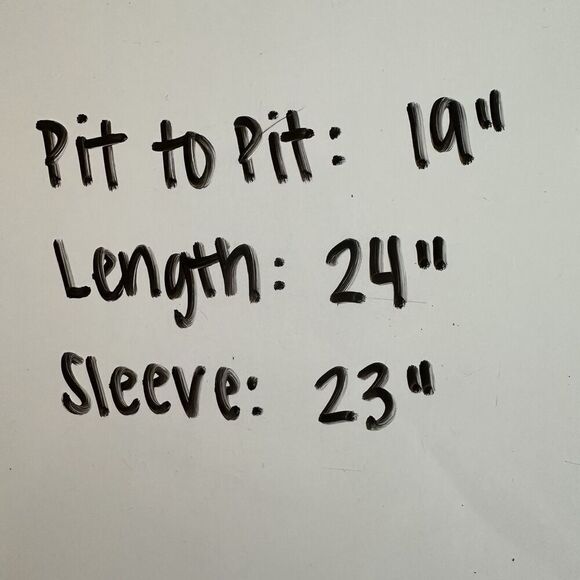 Pit to Pit: 19"
Length: 24"
Sleeve: 23"